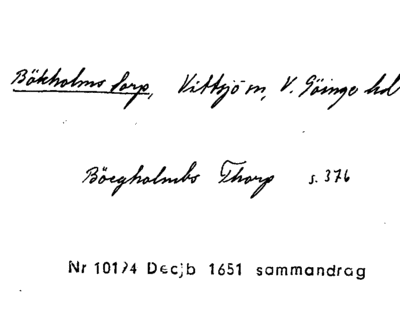 Bökholms torp, Vittsjö sn, V. Göinge hd
Böegholmbs Thorp s. 376
Nr 10174 Decjb 1651 sammandrag